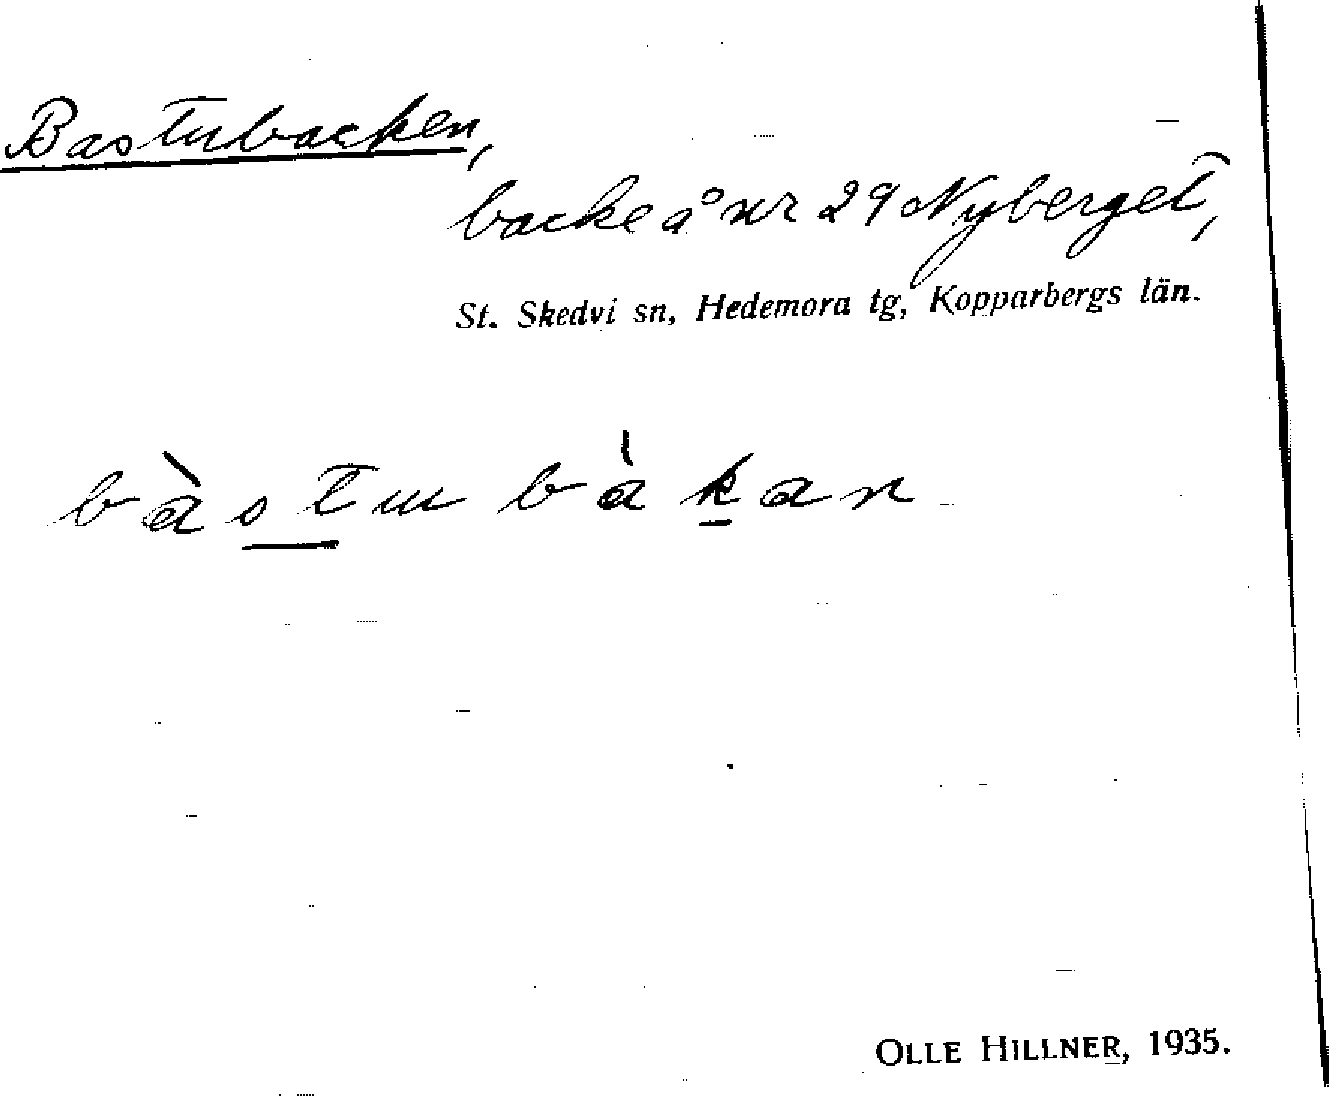 Bastubacken,
backe å nr 29 Nyberget,
St. Skedvi sn, Hedemora tg, Kopparbergs län.
bàstu bàkan
OLLE HILLNER, 1935.